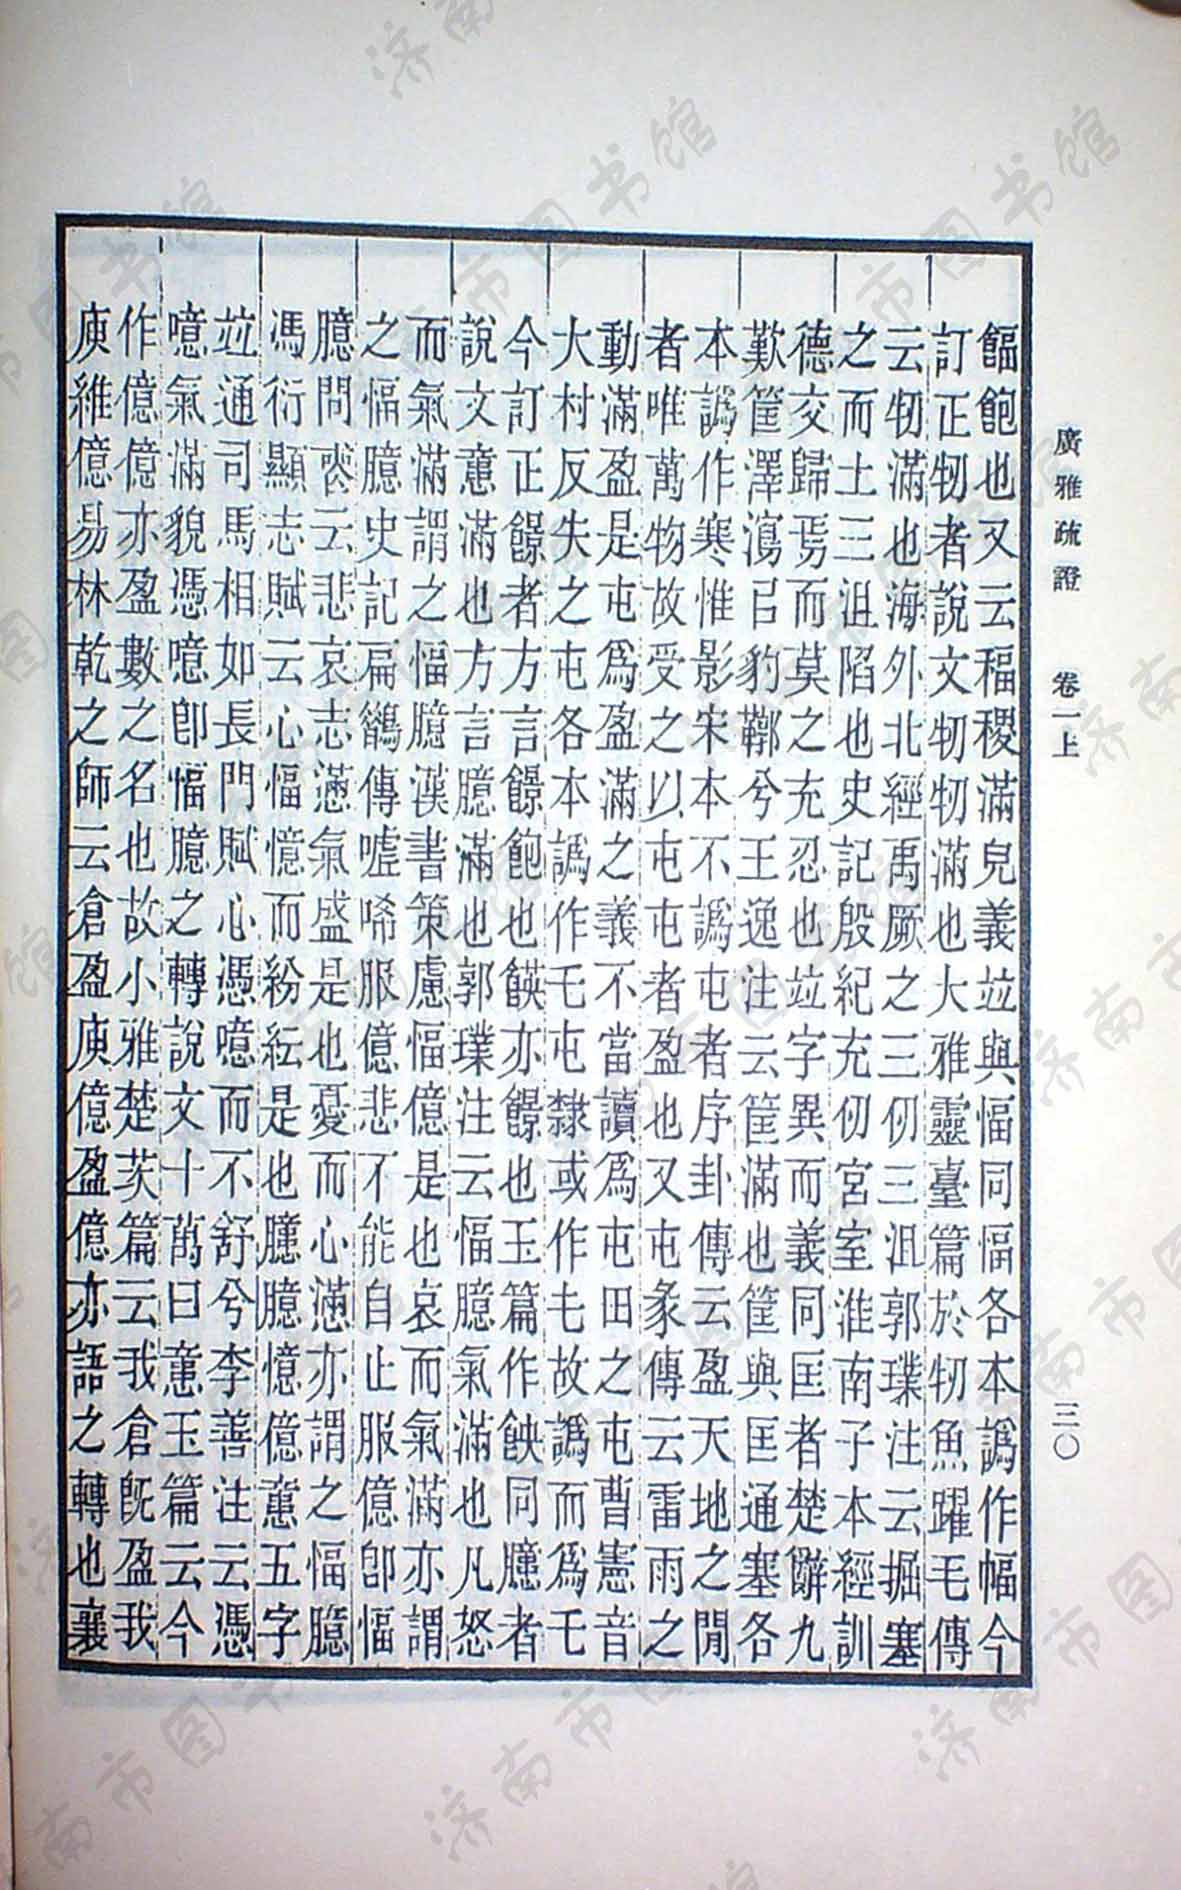 廣雅疏證　卷一上　三〇
餾飽也又云稫稷滿皃義竝與愊同愊各本譌作幅今
訂正牣者說文牣牣滿也大雅靈臺篇於牣魚躍毛傳
云牣滿也海外北經禹厥之三仞三沮郭璞注云掘塞
之而土三沮陷也史記殷紀充仞宮室淮南子本經訓
德交歸焉而莫之充忍也竝字異而義同匡者楚辭九
歎筐澤瀉㠯豹鞹兮王逸注云筐滿也筐與匡通塞各
本譌作寒惟影宋本不譌屯者序卦傳云盈天地之閒
者唯萬物故受之以屯屯者盈也又屯彖傳云雷雨之
動滿盈是屯爲盈滿之義不當讀爲屯田之屯曹憲音
大村反失之屯各本譌作乇屯隸或作乇故譌而爲乇
今訂正餩者方言餩飽也䭊亦餩也玉篇作䭊同臆者
說文意滿也方言臆滿也郭璞注云愊臆氣滿也凡怒
而氣滿謂之愊臆漢書策慮愊億是也哀而氣滿亦謂
之愊臆史記扁鵲傳噓唏服億悲不能自止服億卽愊
臆問喪云悲哀志懣氣盛是也憂而心懣亦謂之愊臆
馮衍顯志賦云心愊憶而紛紜是也臆臆憶億意五字
竝通司馬相如長門賦心憑噫而不舒兮李善注云憑
噫氣滿貌憑噫卽愊臆之轉說文十萬曰意玉篇云今
作億億亦盈數之名也故小雅楚茨篇云我倉旣盈我
庾維億易林乾之師云倉盈庾億盈億亦語之轉也襄